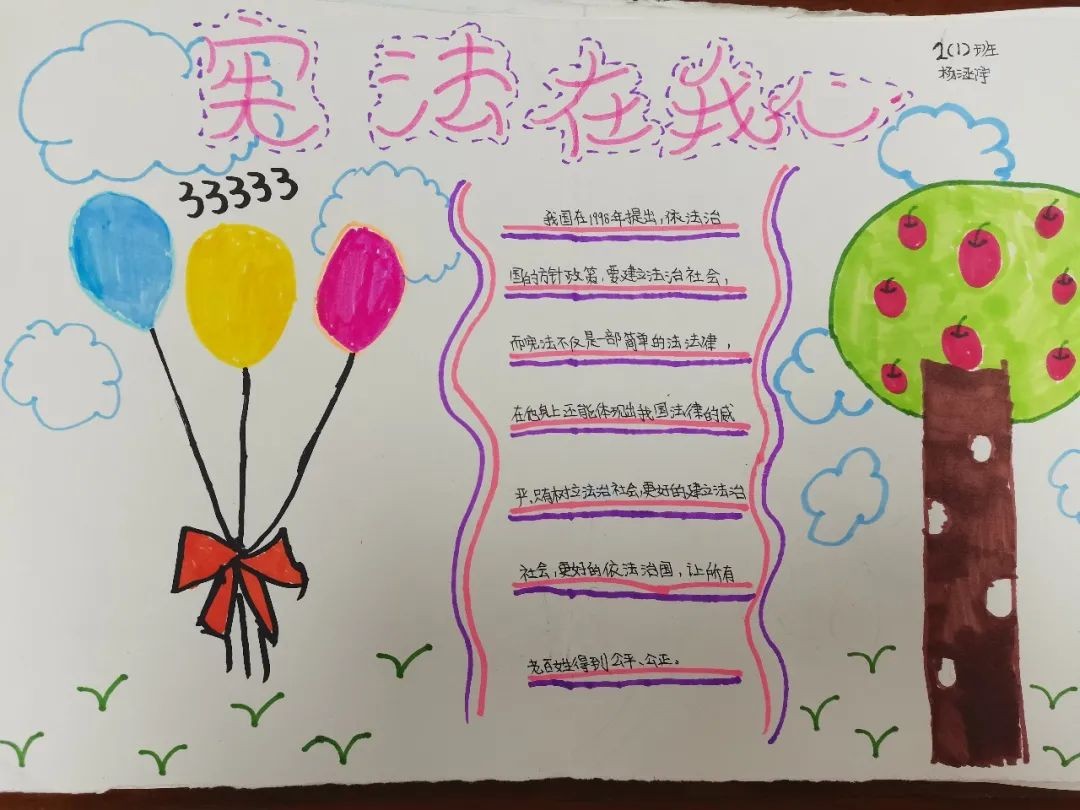 宪法在我心
2(1)班
杨涵淳
33333
我国在1998年提出,依法治
国的方针政策,要建立法治社会,
而宪法不仅是一部简单的法法律,
在他身上还能体现出我国法律的威
严,只有树立法治社会,更好的建立法治
社会,更好的依法治国,让所有
老百姓得到公平、公正。